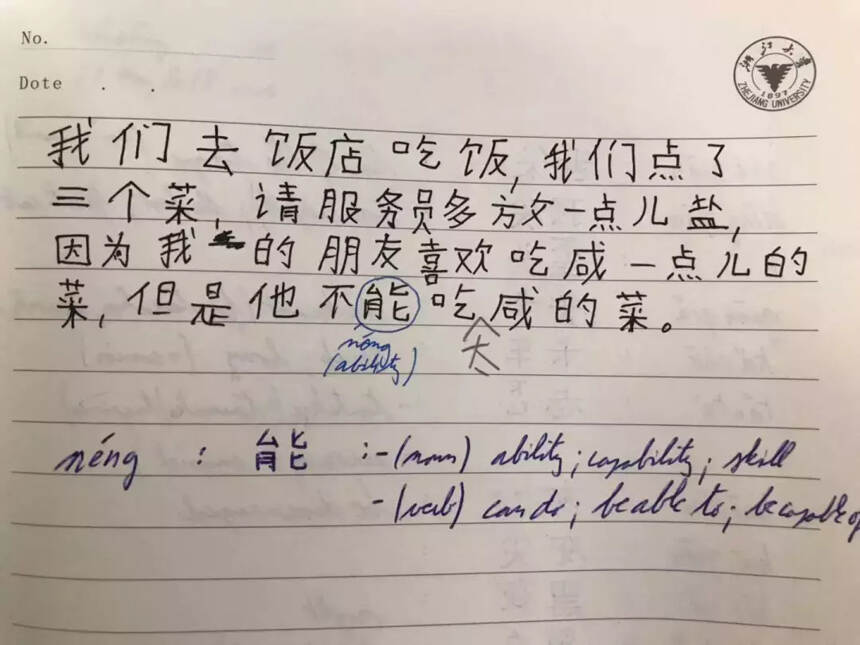 No.
Dote . .
浙江大学
1897
ZHEJIANG UNIVERSITY
我们去饭店吃饭,我们点了
三个菜,请服务员多放一点儿盐,
因为我的朋友喜欢吃咸一点儿的
菜,但是他不能吃太咸的菜。
néng
(ability)
néng : 能 :-(noun) ability; capability; skill
-(verb) can do; be able to; be capable of